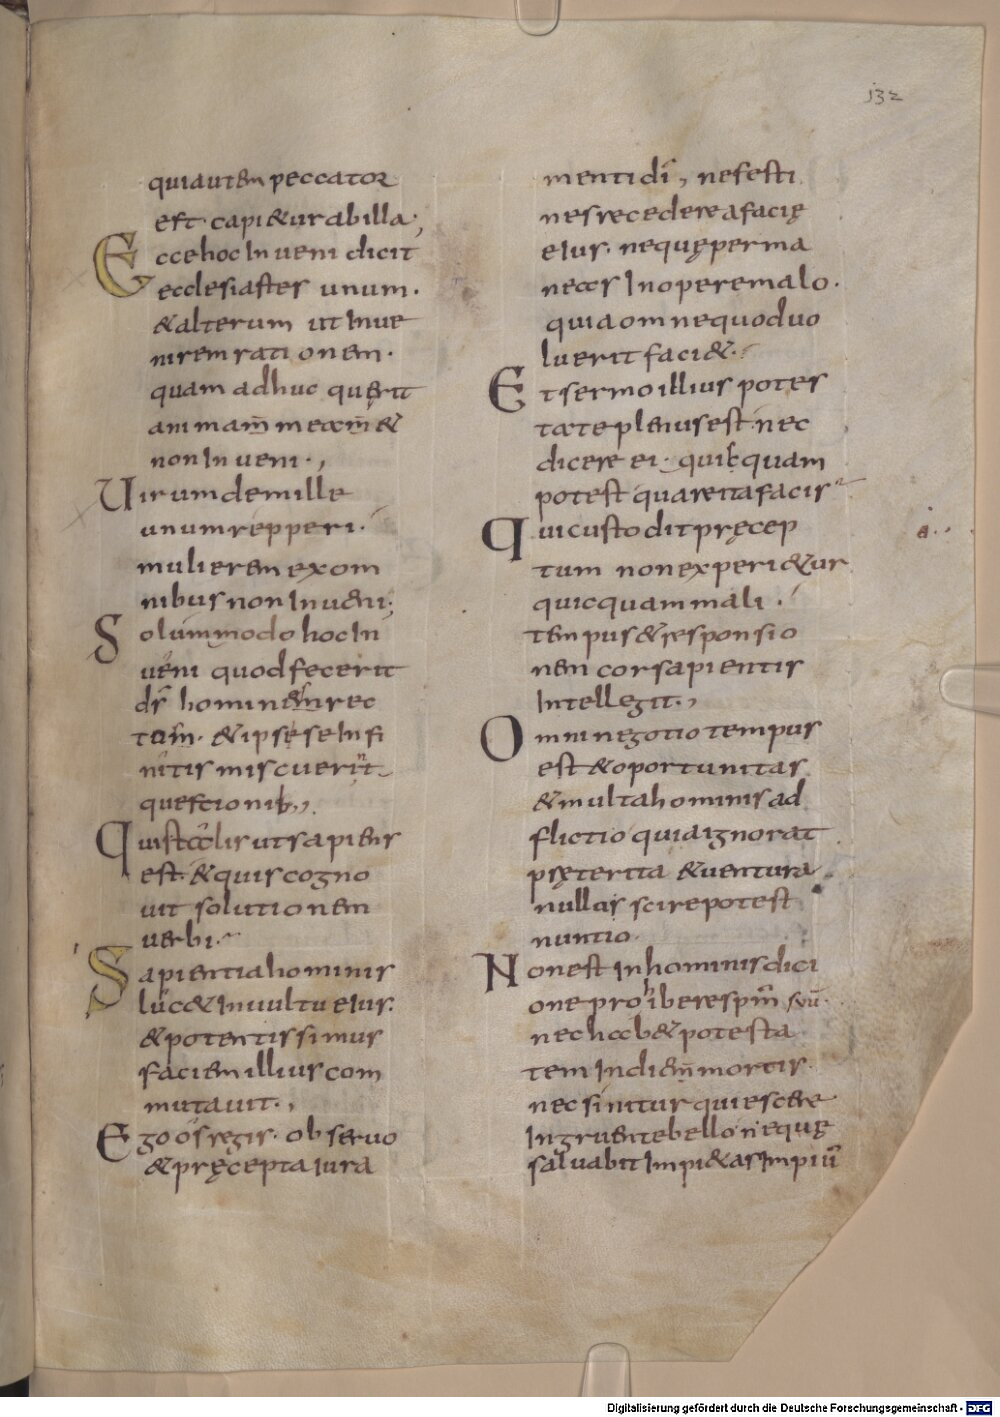 132
quiautem peccator
est. capi&urabilla;
Eccehoc Inueni dicit
ecclesiastes unum.
&alterum ut Inue
niremrationem.
quam adhuc querit
animam̄ meam̄ &
nonInueni.,
Uirumdemille
unumrepperi.
mulieremexom
nibusnonInueni;
Solummodo hocIn
ueni quodfecerit
dſ hominem rec
tum. &ipseseInfi
nitismiscuerit
questionib;,
Quistalisutsapiens
est. &quiscogno
uit solutionem
uerbi.
Sapientiahominis
luc&Inuultueius.
&potentissimus
faciemillius com
mutauit.,
Ego os regis. obseruo
&pręcepta iura
mentidī, nefesti
nesrecedereafacię
eius. nequęperma
neas Inoperemalo.
quiaomnequoduo
luerit faci&.
Etsermoillius potes
tateplenusest. nec
dicere ei. quisquam
potest quareitafacis
Quicustoditpręcep
tum nonexperi&ur
quicquammali.
tempus&responsio
nem corsapientis
Intellegit.,
Omninegotiotempus
est &oportunitas
&multahominisad
flictio quiaignorat
pręterita &uentura
nullus scirepotest
nuntio
NonestInhominisdici
oneprohiberespm̄
nechab&potesta
temIndiem mortis.
necsinitur quiescere
Ingruentebello nequę
saluabitImpi&asImpiū
Digitalisierung gefördert durch die Deutsche Forschungsgemeinschaft - DFG